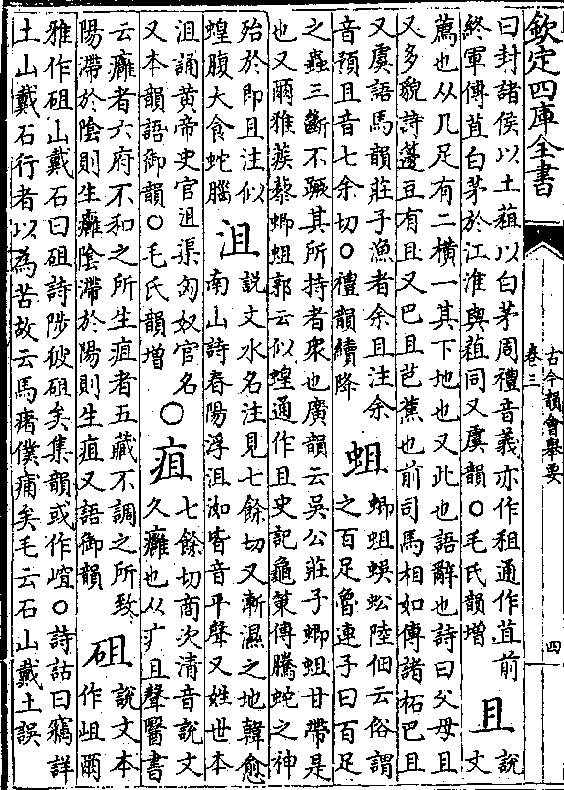 欽定四庫全書
古今韻會舉要
卷三
四
曰封諸侯以土蒩以白茅周禮音義亦作租通作苴前
終軍傳苴白茅於江淮與蒩同又虞韻○毛氏韻增
且
說
文
薦也从几足有二橫一其下地也又此也語辭也詩曰父母且
又多貌詩籩豆有且又巴且芭蕉也前司馬相如傳諸柘巴且
又虞語馬韻莊子漁者余且注余
音預且音七余切○禮韻續降
蛆
蝍蛆蜈蚣陸佃云俗謂
之百足魯連子曰百足
之蟲三斷不蹶其所持者衆也廣韻云吳公莊子蝍蛆甘帶是
也又爾雅蒺藜蝍蛆郭云似蝗通作且史記龜策傳騰蛇之神
殆於即且注似
蝗腹大食蛇腦
沮
說文水名注見七餘切又漸濕之地韓愈
南山詩春陽浮沮洳皆音平聲又姓世本
沮誦黃帝史官沮渠匈奴官名
又本韻語御韻○毛氏韻增
○疽
七餘切商次清音說文
久癰也从疒且聲醫書
云癰者六府不和之所生疽者五藏不調之所致
陽滯於陰則生癰陰滯於陽則生疽又語御韻
砠
說文本
作岨爾
雅作砠山戴石曰砠詩陟彼砠矣集韻或作○詩詁曰竊詳
土山戴石行者以為苦故云馬瘏僕痡矣毛云石山戴土誤